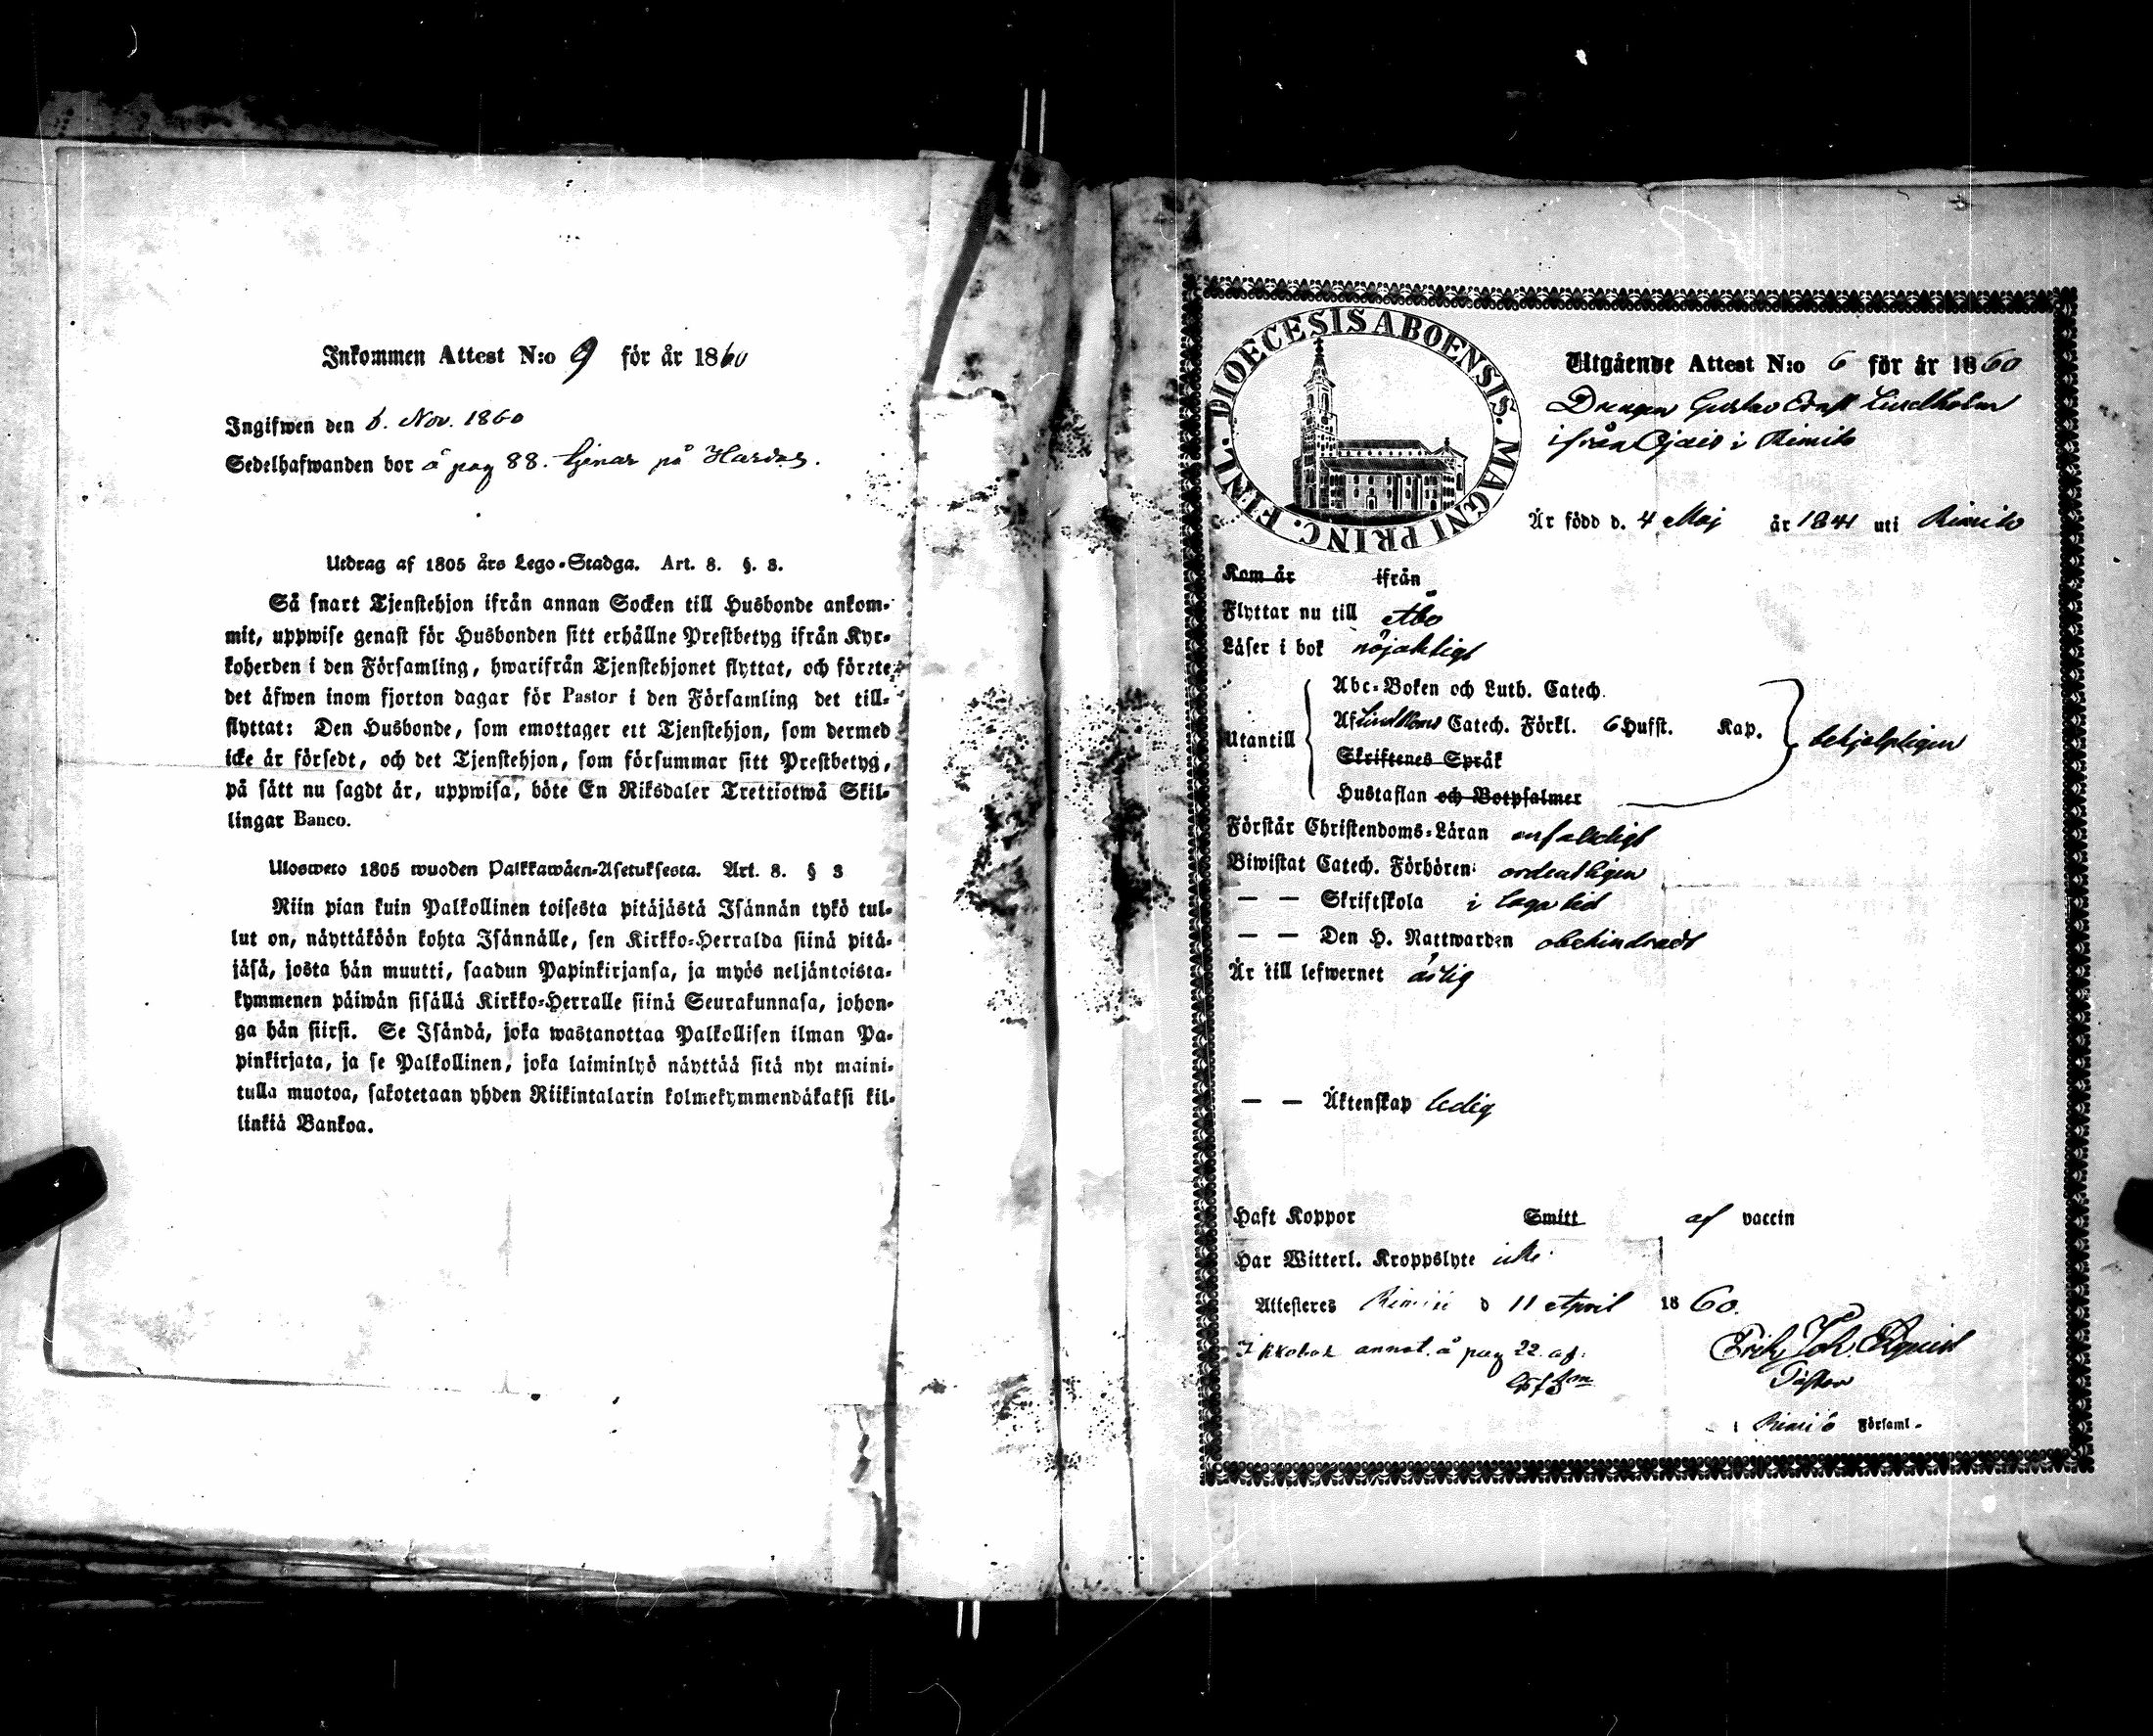 Inkommen Attest N:o 9 för år 1860
Ingifwen den 6. Nov. 1860
Sedelhafwanden bor å pag 88. tjenar på
Utdrag af 1805 års Lego-Stadga. Art. 8. §. 3.
Så snart Tjenstehjon ifrån annan Socken till Husbonde ankom-
mit, uppwise genast för Husbonden sitt erhållne Prestbetyg ifrån Kyr-
koherden i den Församling, hwarifrån Tjenstehjonet flyttat, och förete
det äfwen inom fjorton dagar för Pastor i den Församling det till-
flyttat: Den Husbonde, som emottager ett Tjenstehjon, som dermed
icke är försedt, och det Tjenstehjon, som försummar sitt Prestbetyg,
på sätt nu sagdt är, uppwisa, böte En Riksdaler Trettiotwå Skil-
lingar Banco.
Ulosweto 1805 wuoden Palkkawäen-Asetuksesta. Art. 8. § 3
Niin pian kuin Palkollinen toisesta pitäjästä Isännän tykö tul-
lut on, näyttäköön kohta Isännälle, sen Kirkko-Herralda siinä pitä-
jäsä, josta hän muutti, saadun Papinkirjansa, ja myös neljäntoista-
kymmenen päiwän sisällä Kirkko-Herralle siinä Seurakunnasa, johon-
ga hän siirsi. Se Isändä, joka wastanottaa Palkollisen ilman Pa-
pinkirjata, ja se Palkollinen, joka laiminlyö näyttää sitä nyt maini-
tulla muotoa, sakotetaan yhden Riikintalarin kolmekymmendäkaksi kil-
linkiä Bankoa.
DIOECESIS ABOENSIS. MAGNI PRINC. FINL.
Utgående Attest N:o 6 för år 1860
Drengen Gustav Lindholm
ifrån i Rimito
Är född d. 4 Maj år 1841 uti Rimito
Kom år ifrån
Flyttar nu till Åbo
Läser i bok nöjaktigt
Abc-Boken och Luth. Catech.
Utantill Af Catech. Förkl. 6 Hufst. Kap. behjelpligen
Skriftenes Språk
Hustaflan och Botpsalmer
Förstår Christendoms-Läran enfaldigt
Biwistat Catech. Förhören ordentligen
— — Skriftskola i laga tid
— — Den H. Nattwarden obehindradt
Är till lefwernet ärlig
— — Äktenskap ledig
Haft Koppor Smitt af vaccin
Har Witterl. Kroppslyte icke
Attesteres Rimito d 11 April 1860.
annot. å pag 22. af.
Pastor
i Rimito Församl.